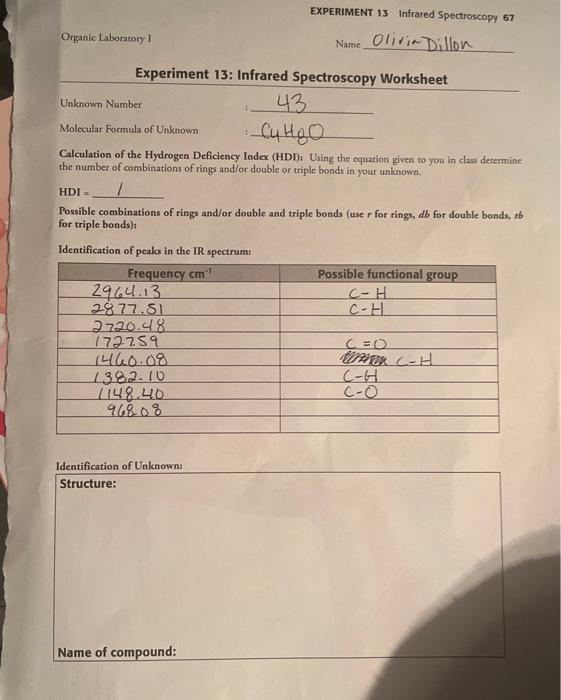 EXPERIMENT 13 Infrared Spectroscopy 67
Organic Laboratory I
Name Olivia Dillon
Experiment 13: Infrared Spectroscopy Worksheet
Unknown Number : 43
Molecular Formula of Unknown : C4H8O
Calculation of the Hydrogen Deficiency Index (HDI): Using the equation given to you in class determine
the number of combinations of rings and/or double or triple bonds in your unknown.
HDI = 1
Possible combinations of rings and/or double and triple bonds (use r for rings, db for double bonds, tb
for triple bonds):
Identification of peaks in the IR spectrum:
Frequency cm-1 Possible functional group
2964.13 C-H
2877.51 C-H
2720.48
1727.59 C=O
1460.08 C-H
1382.10 C-H
1148.40 C-O
968.08
Identification of Unknown:
Structure:
Name of compound: